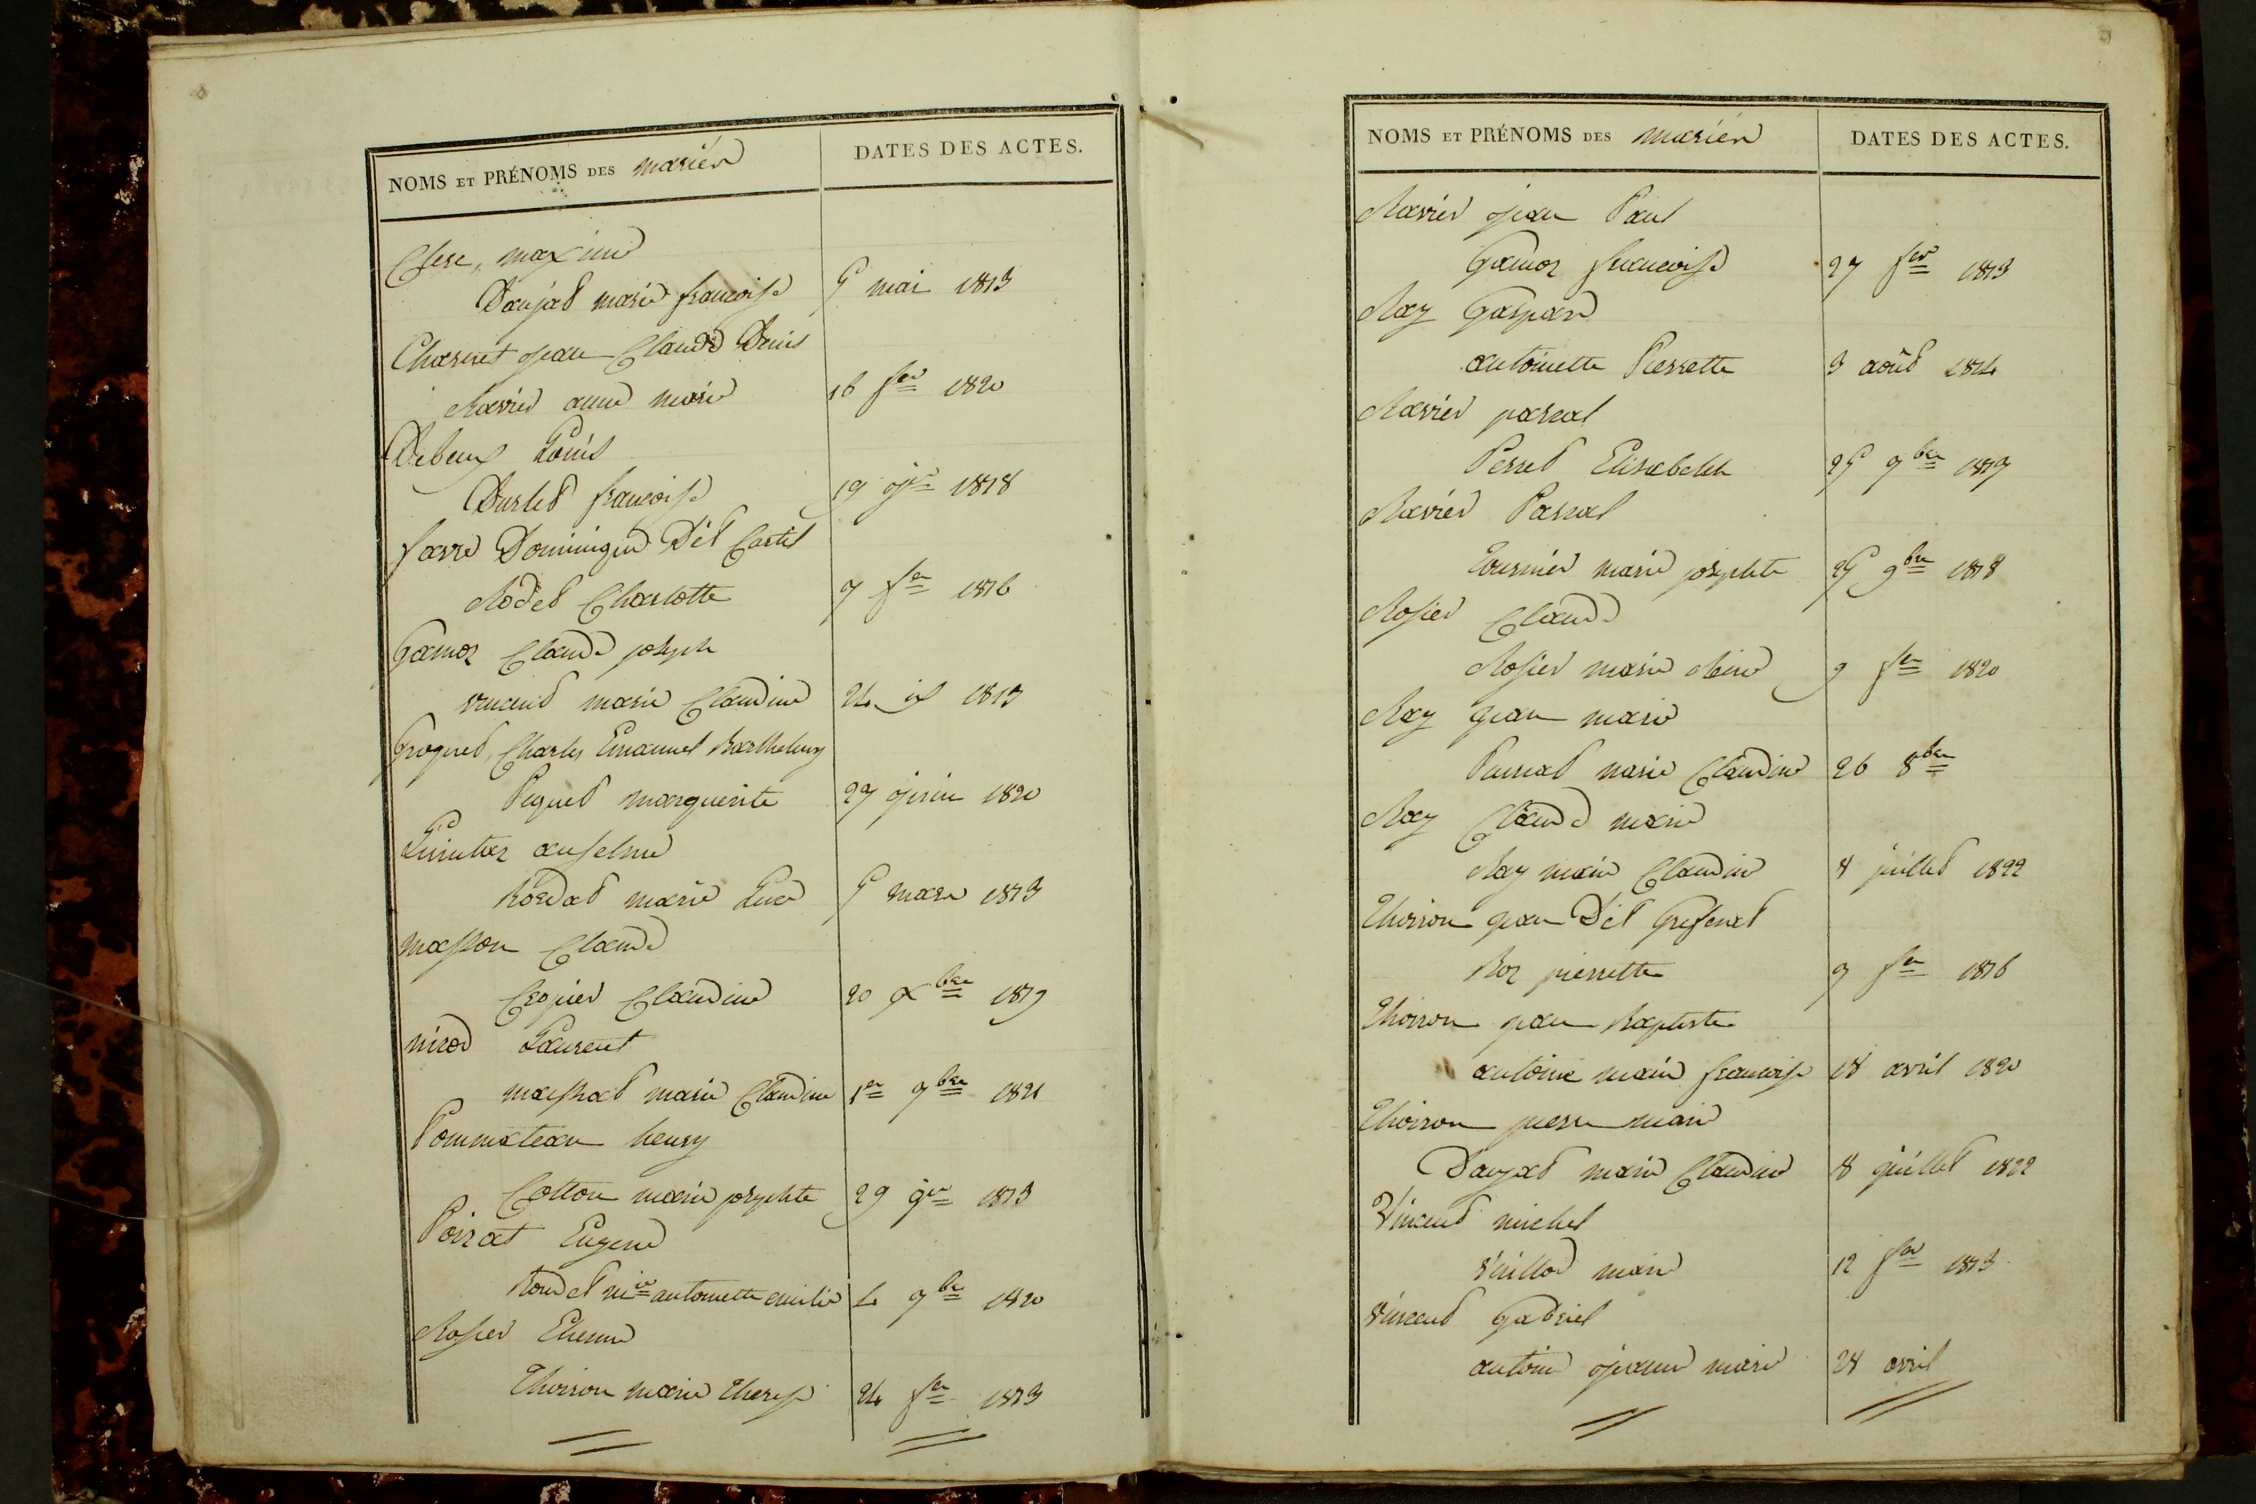 NOMS ET PRÉNOMS DES mariés
DATES DES ACTES.
Clerc, maxime
Daujat marie françoise 5 mai 1813
Charnet jean Claude Denis
Ravier anne marie 16 fer 1820
Debeuf Louis
Burlet françoise 19 jer 1818
favre Dominique Dél Castel
Rodet Charlotte 7 fer 1816
Gamoz Claude joseph
vincent marie Claudine 24 1813
Groguet, Charles Emanuel Barthelemy
Piquet marguerite 27 juin 1820
anselme
Bordat marie Luce 5 mars 1813
masson Claude
Claudine 20 xbre 1819
nizod Laurent
massat marie Claudine 1er 9bre 1821
Pommateau henry
Cotton marie josephte 29 jer 1813
Poizat Eugene
Rondet mie antoinette emilie 4 9bre 1820
Rosier Etienne
Thoison marie therese 24 fer 1813
NOMS ET PRÉNOMS DES mariés
DATES DES ACTES.
Ravier jean Paul
Gamoz françoise 27 fer 1813
Ray Gaspard
antoinette Pierrette 3 août 1814
Ravier pascal
Perret Elisabeth 25 9bre 1819
Ravier Pascal
marie josephte 25 9bre 1818
Rosier Claude
Rosier marie Reine 9 fer 1820
Ray jean marie
marie Claudine 26 8bre
Ray Claude marie
Ray marie Claudine 8 juillet 1822
Thoison jean Dél
Roz pierrette 9 fer 1816
Thoison jean Baptiste
antoine marie françoise 18 avril 1820
Thoison pierre marie
Daujat marie Claudine 8 juillet 1822
Vincent michel
Vuillod marie 12 fer 1813
Vincent Gabriel
antoine jeanne marie 28 avril